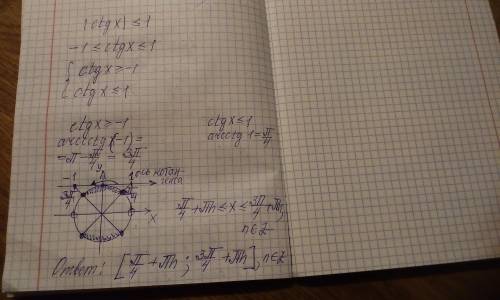 |ctgx| ≤ 1
-1 ≤ ctgx ≤ 1
{ ctgx ≥ -1
{ ctgx ≤ 1
ctgx ≥ -1
arcctg(-1) =
= π - π/4 = 3π/4
ctgx ≤ 1
arcctg 1 = π/4
y
-1 1 ось котан-
генса
3π/4 π/4
x
π/4 + πn ≤ x ≤ 3π/4 + πn,
n∈Z
Ответ: [π/4 + πn ; 3π/4 + πn], n∈Z